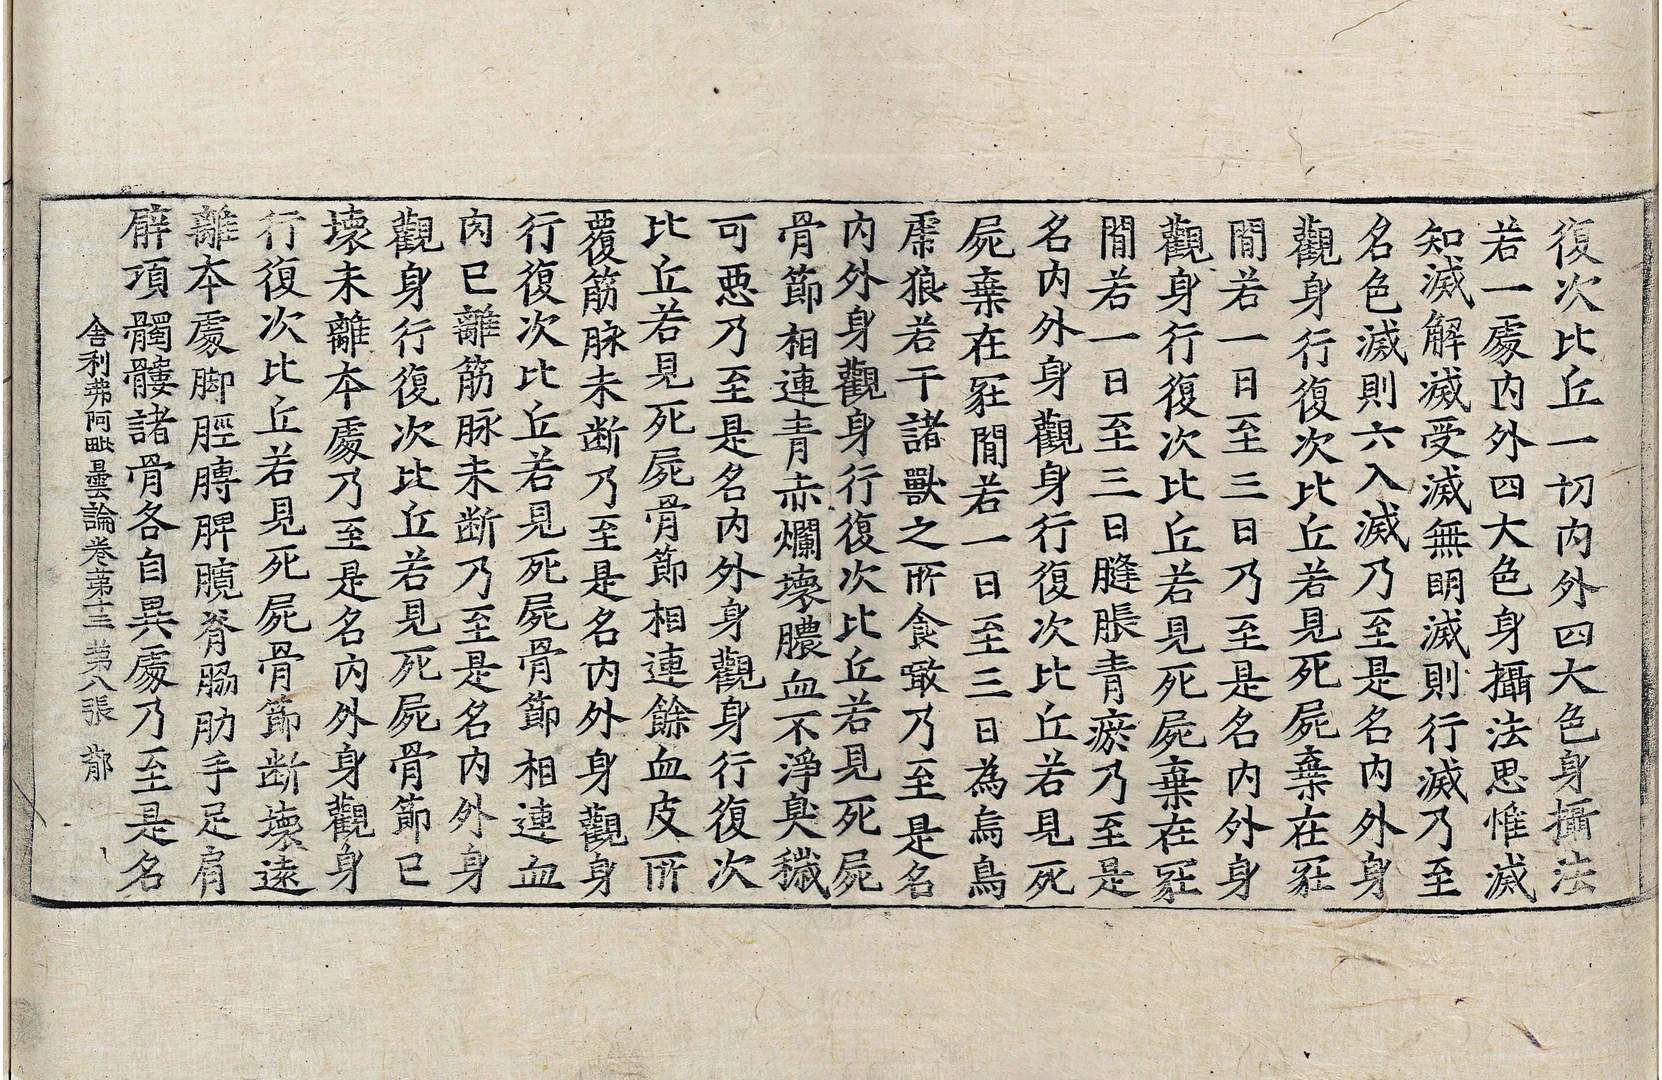 復次比丘一切内外四大色身攝法
若一處内外四大色身攝法思惟滅
知滅解滅受滅無明滅則行滅乃至
名色滅則六入滅乃至是名内外身
觀身行復次比丘若見死屍棄在𡨥
間若一日至三日乃至是名内外身
觀身行復次比丘若見死屍棄在𡨥
間若一日至三日膖脹青瘀乃至是
名内外身觀身行復次比丘若見死
屍棄在𡨥間若一日至三日為烏鳥
虎狼若干諸獸之所食噉乃至是名
内外身觀身行復次比丘若見死屍
骨節相連青赤爛壞膿血不淨臭穢
可惡乃至是名内外身觀身行復次
比丘若見死屍骨節相連餘血皮所
覆筋脉未断乃至是名内外身觀身
行復次比丘若見死屍骨節相連血
肉已離筋脉未断乃至是名内外身
觀身行復次比丘若見死屍骨節已
壞未離本處乃至是名内外身觀身
行復次比丘若見死屍骨節断壞遠
離本處脚脛膞髀臗脊脇肋手足肩
臂項髑髏諸骨各自異處乃至是名
舍利弗阿毗曇論卷第十三 第八張 𦫵